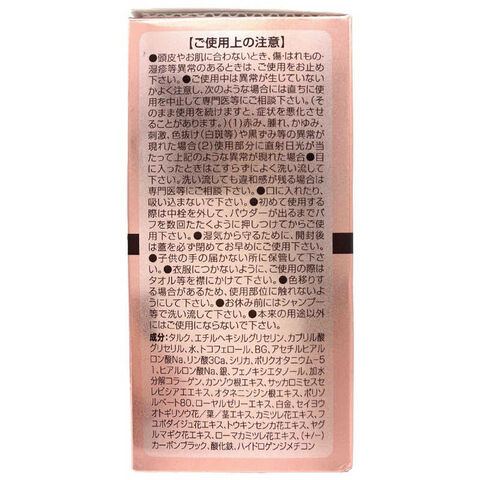 【ご使用上の注意】
●頭皮やお肌に合わないとき、傷・はれもの・
湿疹等異常のあるときは、ご使用をお止め
下さい。●ご使用中は異常が生じていない
かよく注意し、次のような場合には直ちに使
用を中止して専門医等にご相談下さい。(そ
のまま使用を続けますと、症状を悪化させ
ることがあります。)(1)赤み、腫れ、かゆみ、
刺激、色抜け(白斑等)や黒ずみ等の異常が
現れた場合(2)使用部分に直射日光が当
たって上記のような異常が現れた場合●目
に入ったときはこすらずによく洗い流して下
さい。洗い流しても違和感が残る場合は
専門医等にご相談下さい。●口に入れたり、
吸い込まないで下さい。●初めて使用す
る際は中栓を外して、パウダーが出るまでパ
フを数回たたくように押しつけてからご使
用下さい。●湿気から守るために、開封後
は蓋を必ず閉めてお早めにご使用下さい。
●子供の手の届かない所に保管して下さ
い。●衣服につかないように、ご使用の際は
タオル等を襟にかけて下さい。●色移りす
る場合があるため、使用部位に触れないよ
うにして下さい。●お休み前にはシャンプー
等で洗い流して下さい。●本来の用途以外
にはご使用にならないで下さい。
成分:タルク、エチルヘキシルグリセリン、カプリル酸
グリセリル、水、トコフェロール、BG、アセチルヒアル
ロン酸Na、リン酸3Ca、シリカ、ポリクオタニウム-5
1、ヒアルロン酸Na、銀、フェノキシエタノール、加水
分解コラーゲン、カンゾウ根エキス、サッカロミセスセ
レビシアエエキス、オタネニンジン根エキス、ポリソ
ルベート80、ローヤルゼリーエキス、白金、セイヨウ
オトギリソウ花/葉/茎エキス、カミツレ花エキス、フ
ユボダイジュ花エキス、トウキンセンカ花エキス、ヤグ
ルマギク花エキス、ローマカミツレ花エキス、(+/-)
カーボンブラック、酸化鉄、ハイドロゲンジメチコン